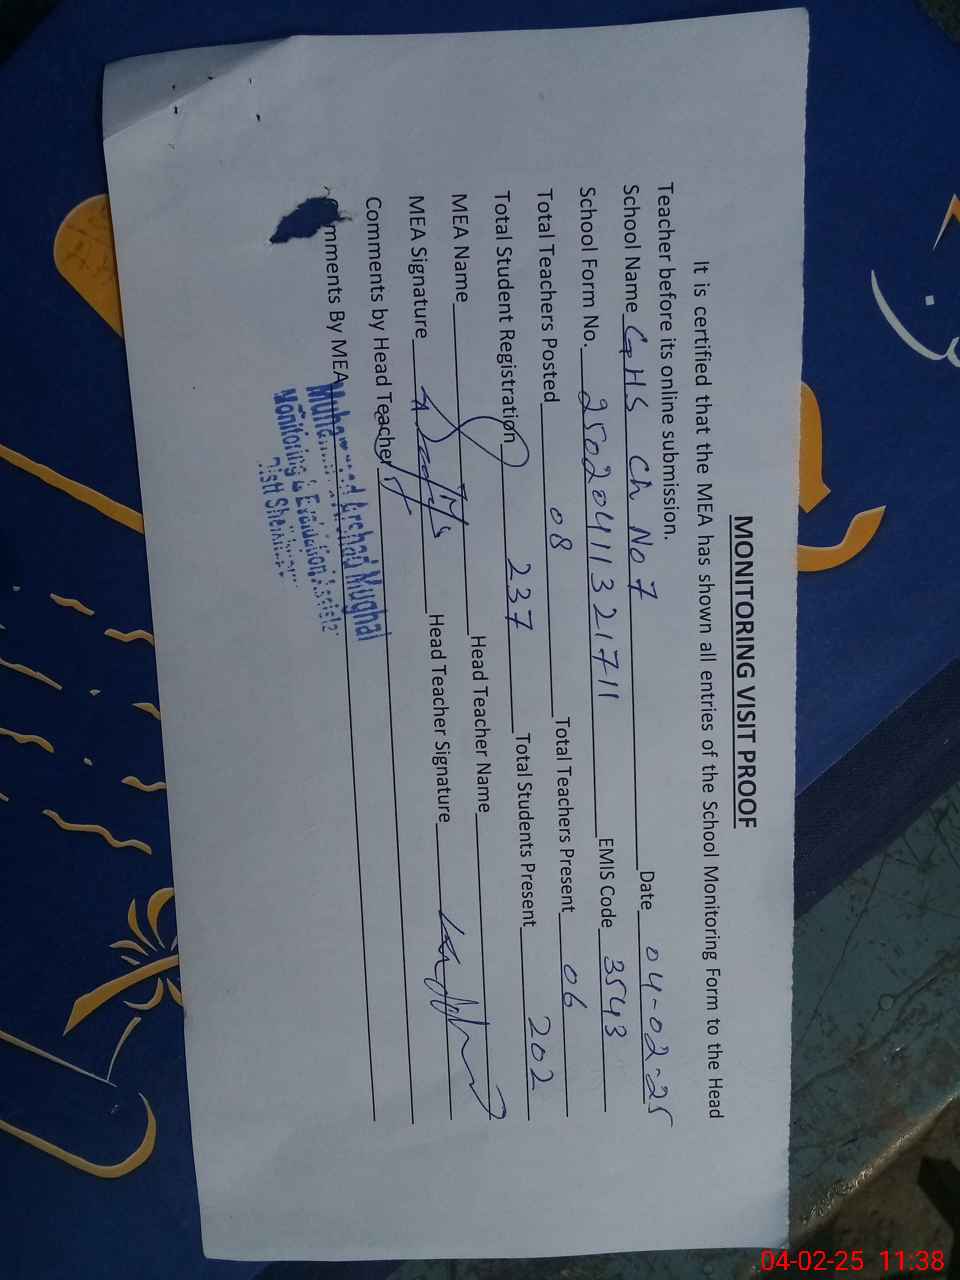 MONITORING VISIT PROOF
It is certified that the MEA has shown all entries of the School Monitoring Form to the Head
Teacher before its online submission.
School Name GHS Ch No 7 Date 04-02-25
School Form No. 25020411321711 EMIS Code 3543
Total Teachers Posted 08 Total Teachers Present 06
Total Student Registration 237 Total Students Present 202
MEA Name Head Teacher Name
MEA Signature Head Teacher Signature
Comments by Head Teacher
mments By MEA
Muhammad Arshad Mughal
Monitoring & Evaluation
Distt
04-02-25 11:38